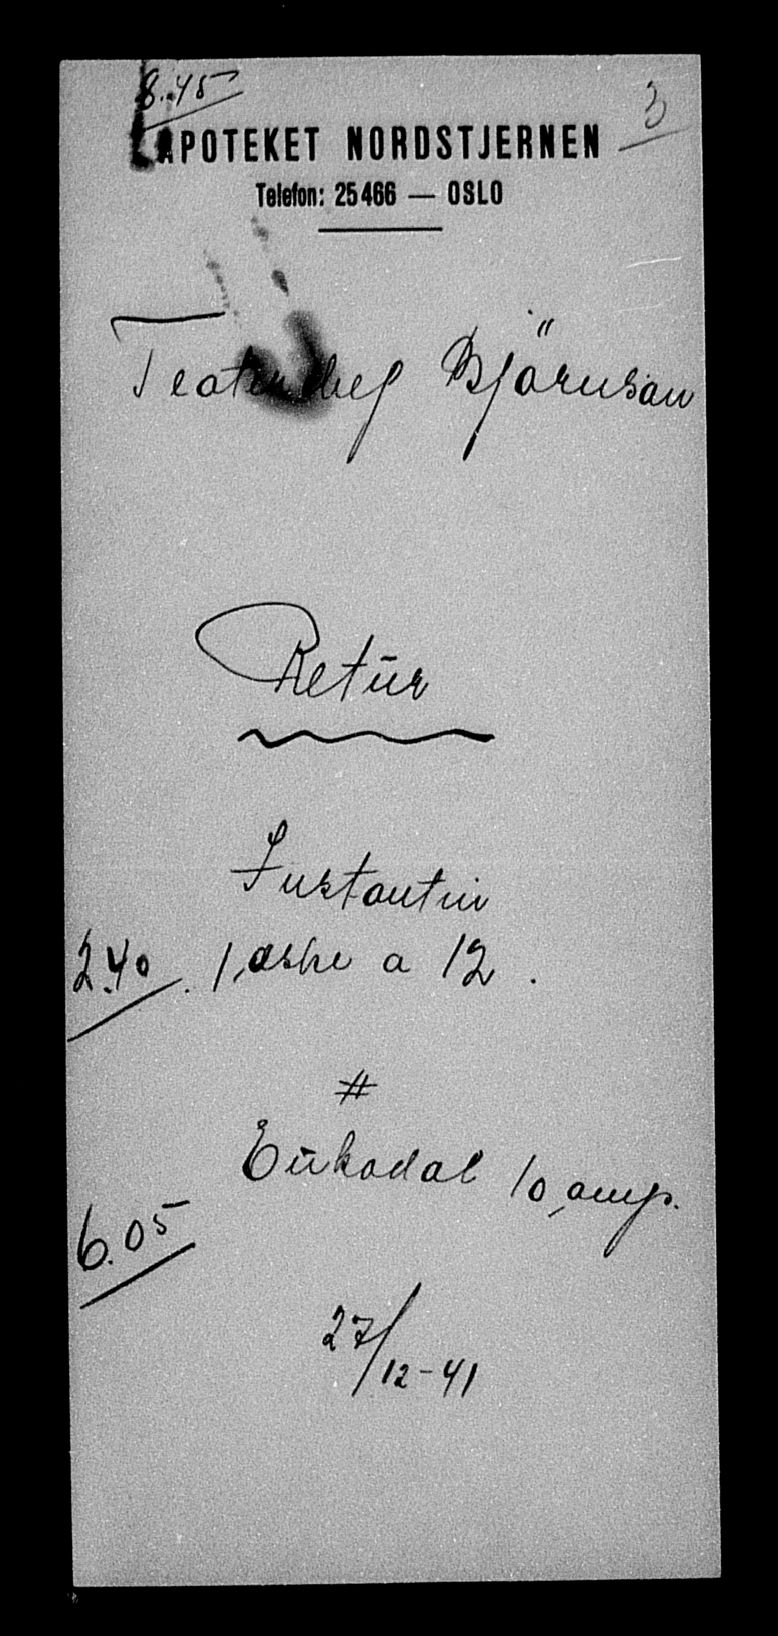 8.45
3
APOTEKET NORDSTJERNEN
Telefon: 25466 — OSLO
Teaterchef Björnson
Retur
Instantin
2.40. 1 æske a 12.
#
Eukodal 10 amp.
6.05
27/12-41